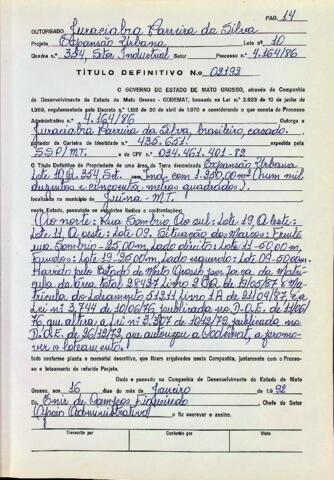 PAG. 14
OUTORGADO Juraciabra Parreira da Silva
Projeto Expansão Urbana Lote nº 10
Quadra nº 354, Setor Industrial Processo nº 4.164/86
TÍTULO DEFINITIVO Nº 02193
O GOVERNO DO ESTADO DE MATO GROSSO, através da Companhia
de Desenvolvimento do Estado de Mato Grosso - CODEMAT, baseado na Lei N.º 2.923 de 10 de junho de
1.969, regulamentado pelo Decreto N.º 1.138 de 30 de abril de 1970 e considerando o que consta do Processo
Administrativo nº 4.164/86 Outorga a
Juraciabra Parreira da Silva, brasileiro, casado.
portador da Carteira de Identidade nº 435.651. expedida pela
SSP/MT. e do CPF nº 024.461.401-82
O Título Definitivo de Propriedade de uma área de Terra denominada Expansão Urbana
Lote 10/Q. 354, Set. Ind. com 1.250,00m² (hum mil
duzentos e cincoenta metros quadrados).
localizada no município de Juína - MT.
neste Estado, possuindo os seguintes limites e confrontações:
Ao norte: Rua Ao sul: Lote 19, A leste:
Lote 11, A oeste: Lote 09. Situação dos Marcos: Frente
rua 25,00m, Lado direito: Lote 11-50,00m,
Fundos: Lote 19-25,00m, Lado esquerdo: Lote 09-50,00m.
Havido pelo Estado de Mato Grosso por força da Matrí-
cula da área total 28427 Livro 2 CQ de 19/05/87 e Ma-
trícula do Loteamento 51211 Livro 1A de 21/04/87 e a
Lei nº 3.744 de 10/06/76 publicada no D.O.E. de 11/06/
76, que altera a Lei nº 3.307 de 18/12/72 publicada no
D.O.E. de 26/12/72 que autorizou a Codemat, a promo-
ver o loteamento.
tudo conforme planta e memorial descritivo, que ficam arquivados nesta Companhia, juntamente com o Proces-
so e loteamento do referido Projeto.
Dado e passado na Companhia de Desenvolvimento do Estado de Mato
Grosso, aos 16 dias do mês de Janeiro de 1.992
Eu, Enir de Campos Figueiredo, Chefe do Setor
(Apoio Administrativo) o fiz escrever e assino.
Transcrito por Conferido por Visto